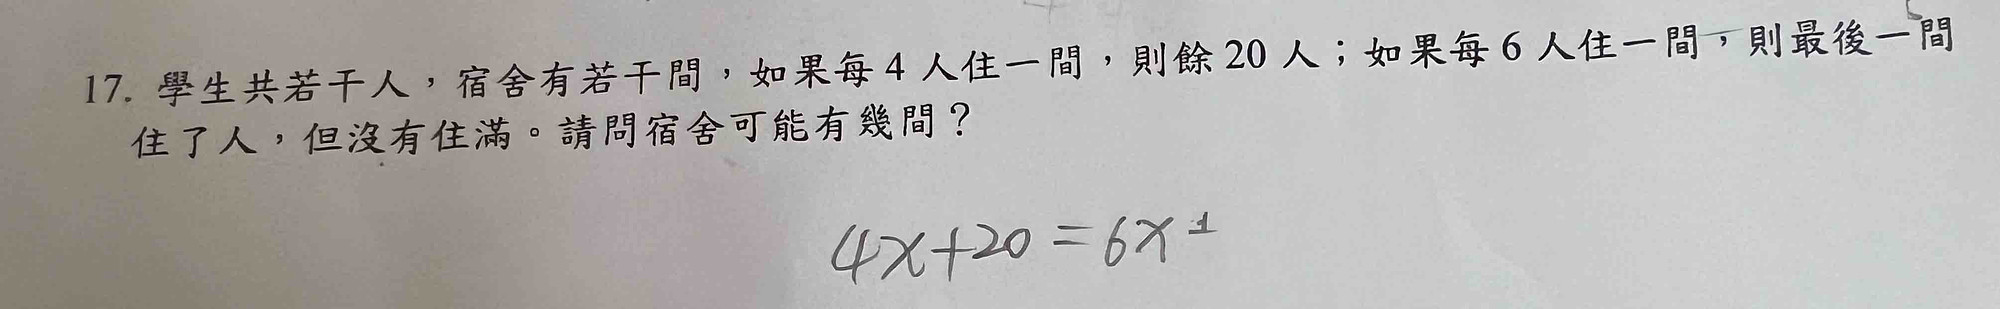 17. 學生共若干人，宿舍有若干間，如果每 4 人住一間，則餘 20 人；如果每 6 人住一間，則最後一間
住了人，但沒有住滿。請問宿舍可能有幾間？
4x+20=6x